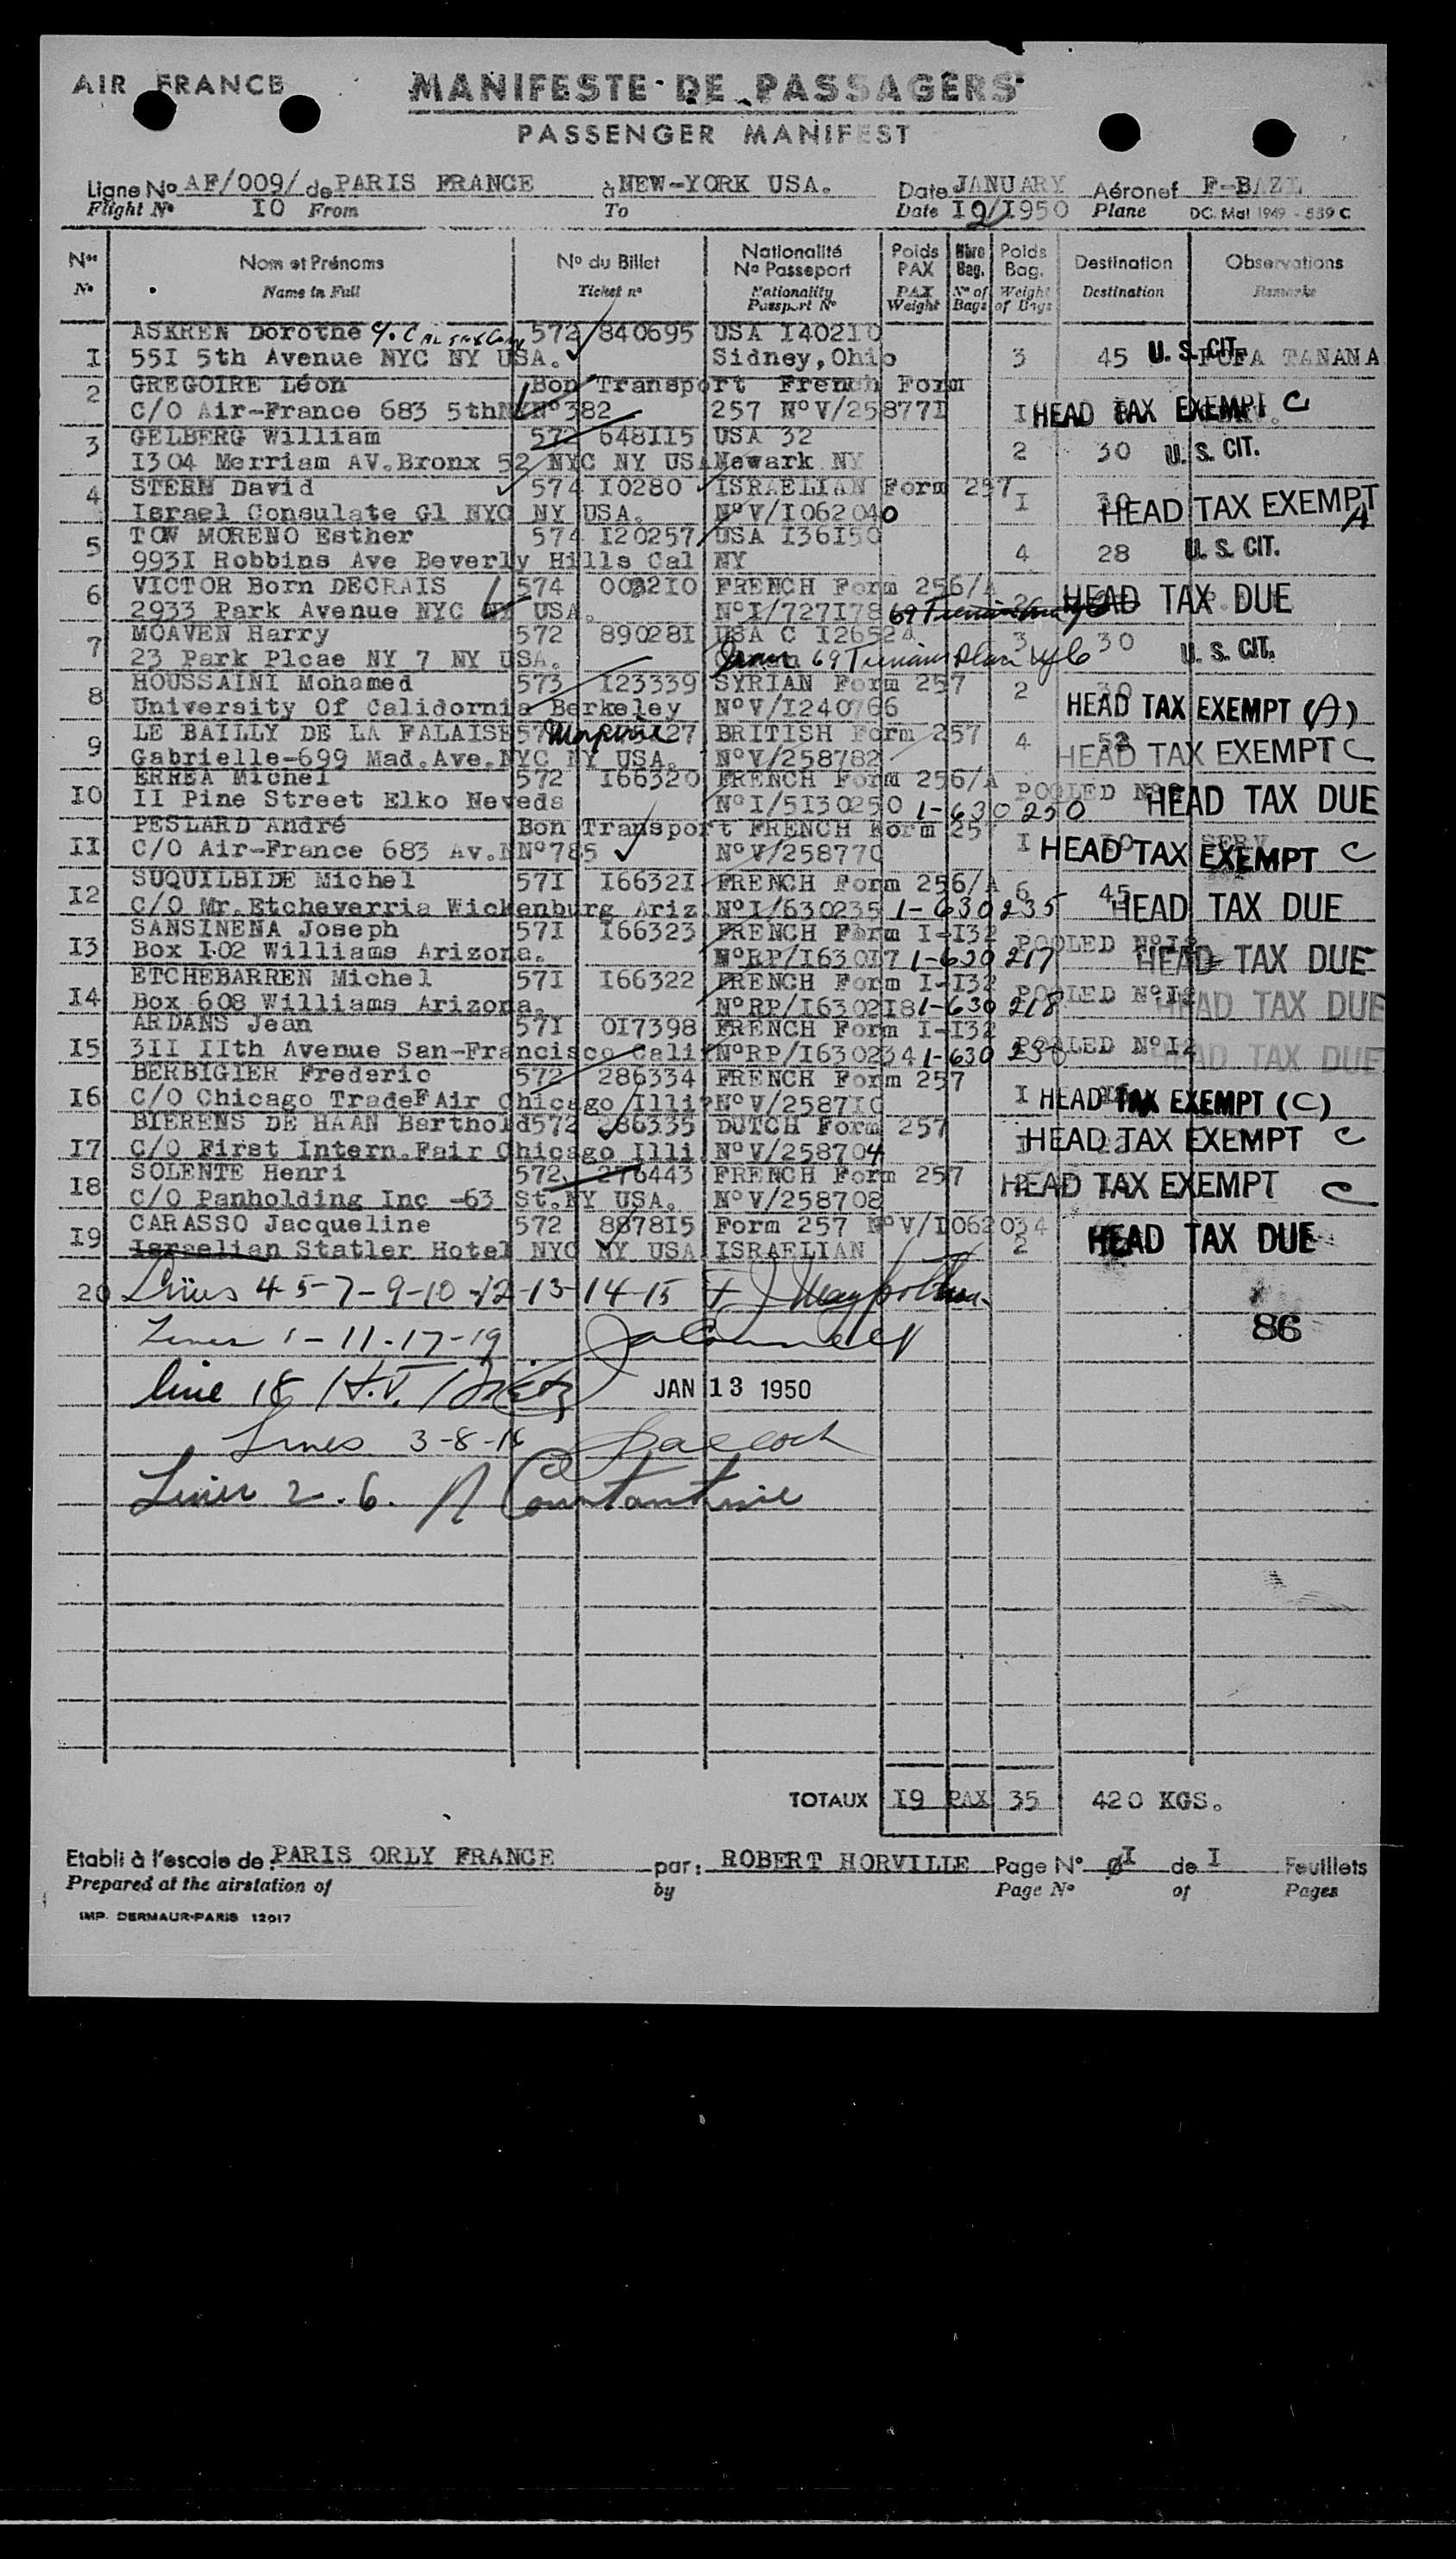 AIR FRANCE
MANIFESTE DE PASSAGERS
PASSENGER MANIFEST
Ligne No AF/009/ de PARIS FRANCE à NEW-YORK USA. Date JANUARY Aéronef F-BAZL
Flight No I0 From To Date I2/I950 Plane DC. Mai 1949 - 589 C
Nos Nom et Prénoms No du Billet Nationalité No Passeport Poids PAX Nbre Bag. Poids Bag. Destination Observations
No Name in Full Ticket no Nationality Passport No PAX Weight No of Bags Weight of Bags Destination Remarks
ASKREN Dorothe 572 840695 USA I40210
I 55I 5th Avenue NYC NY USA. Sidney,Ohio 3 45 U. S. CIT. TANANA
2 GREGOIRE Léon Bon Transport French Form
C/O Air-France 683 5th No382 257 NoV/25877I I HEAD TAX EXEMPT C
3 GELBERG William 572 648II5 USA 32
I304 Merriam AV.Bronx 52 NYC NY USA Newark NY 2 30 U. S. CIT.
4 STERN David 574 I0280 ISRAELIAN Form 257
Israel Consulate Gl NYC NY USA. NoV/I062040 I 30 HEAD TAX EXEMPT A
5 TOW MORENO Esther 574 I20257 USA I36I50
993I Robbins Ave Beverly Hills Cal NY 4 28 U. S. CIT.
6 VICTOR Born DECRAIS 574 003210 FRENCH Form 256/A
2933 Park Avenue NYC NY USA. NoI/727I78 HEAD TAX DUE
7 MOAVEN Harry 572 89028I USA C I26524 3 30
23 Park Plcae NY 7 NY USA. 69 U. S. CIT.
8 HOUSSAINI Mohamed 573 I23339 SYRIAN Form 257 2 30
University Of Calidornia Berkeley NoV/I240766 HEAD TAX EXEMPT (A)
9 LE BAILLY DE LA FALAISE 27 BRITISH Form 257 4
Gabrielle-699 Mad.Ave.NYC NY USA. NoV/258782 HEAD TAX EXEMPT C
ERREA Michel 572 I66320 FRENCH Form 256/A POOLED
I0 II Pine Street Elko Neveds NoI/5I30250 1-630250 HEAD TAX DUE
PESLARD André Bon Transport FRENCH Form 257
II C/O Air-France 683 Av.N No785 NoV/258770 I HEAD TAX EXEMPT C
I2 SUQUILBIDE Michel 57I I6632I FRENCH Form 256/A 6 45
C/O Mr.Etcheverria Wickenburg Ariz. NoI/630235 1-630235 HEAD TAX DUE
SANSINENA Joseph 57I I66323 FRENCH Form I-I32 POOLED NoI2
I3 Box I02 Williams Arizona. NoRP/I630I7 1-630217 HEAD TAX DUE
ETCHEBARREN Michel 57I I66322 FRENCH Form I-I32 POOLED NoI2
I4 Box 608 Williams Arizona. NoRP/I6302I8 1-630218 HEAD TAX DUE
ARDANS Jean 57I 0I7398 FRENCH Form I-I32
I5 3II IIth Avenue San-Francisco Calif NoRP/I630234 1-630 POOLED NoI2 HEAD TAX DUE
BERBIGIER Frederic 572 286334 FRENCH Form 257
I6 C/O Chicago TradeF Air Chicago Illi? NoV/2587I0 I HEAD TAX EXEMPT (C)
BIERENS DE HAAN Barthold 572 286335 DUTCH Form 257
I7 C/O First Intern.Fair Chicago Illi. NoV/258704 HEAD TAX EXEMPT C
SOLENTE Henri 572 276443 FRENCH Form 257
I8 C/O Panholding Inc -63 St.NY USA. NoV/258708 HEAD TAX EXEMPT C
CARASSO Jacqueline 572 8878I5 Form 257 NoV/I062034
I9 Israelian Statler Hotel NYC NY USA ISRAELIAN 2 HEAD TAX DUE
20 Lines 4-5-7-9-10-12-13-14-15
Lines 1-11-17-19 86
line 18 JAN 13 1950
Lines 3-8-16
Lines 2.6.
TOTAUX I9 PAX 35 420 KGS.
Etabli à l'escale de: PARIS ORLY FRANCE par: ROBERT HORVILLE Page No I de I Feuillets
Prepared at the airstation of by Page No of Pages
IMP. DERMAUR-PARIS 12017